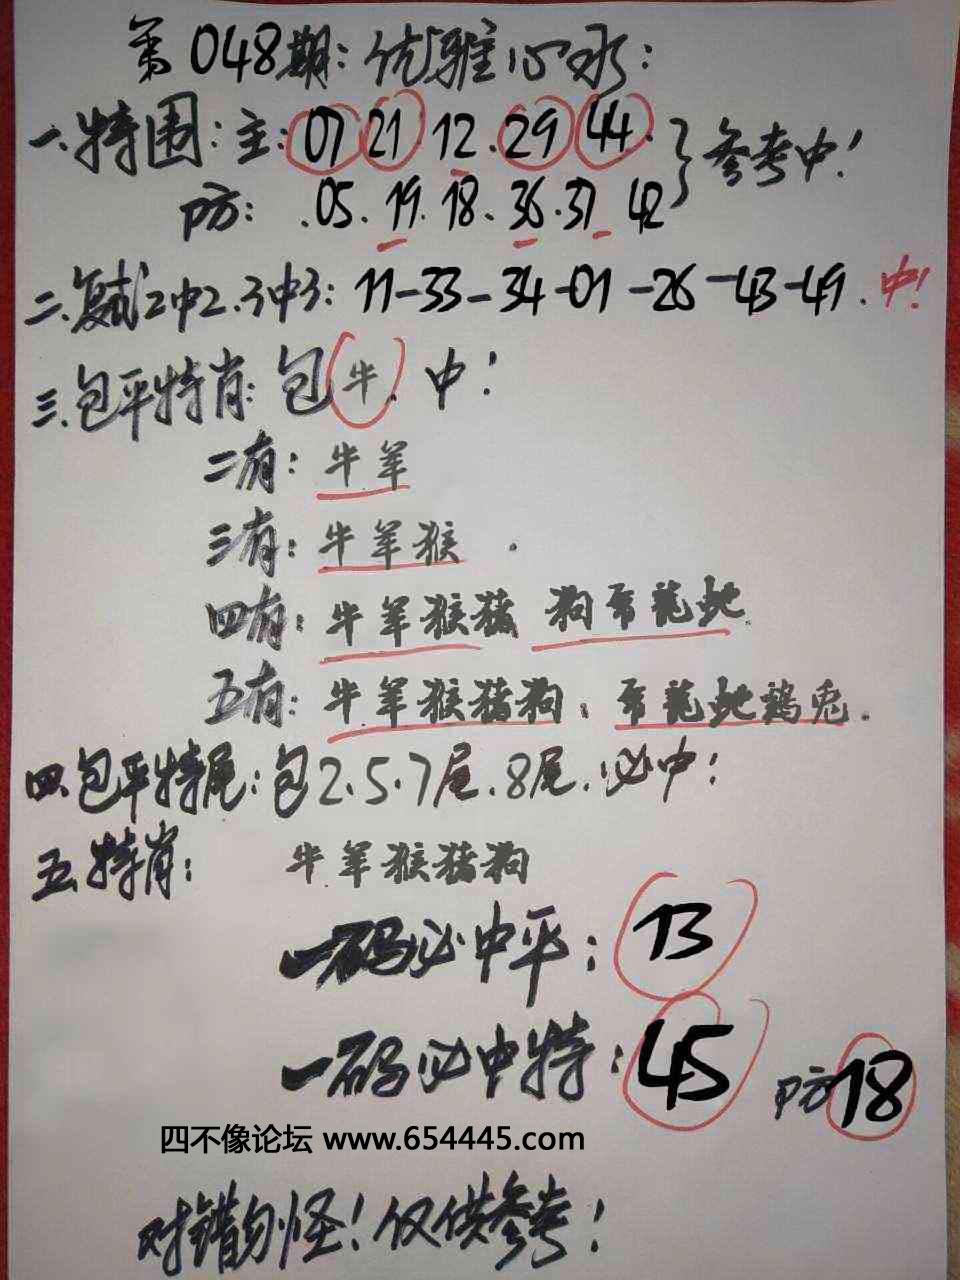 第048期:优雅心水:
一.特围:主:07 21.12.29.44.
防:.05.19.18.36.37.42 }参考中!
二.复试2中2.3中3:11-33-34-01-26-43-49.中!
三.包平特肖:包牛.中!
二有:牛羊
三有:牛羊猴.
四有:牛羊猴猪 狗 龙蛇.
五有:牛羊猴猪狗: 龙蛇鸡兔.
四.包平特尾:包2.5.7尾.8尾.必中!
五.特肖: 牛羊猴猪狗
一码必中平:13
一码必中特:45 防18
四不像论坛 www.654445.com
对错勿怪!仅供参考!